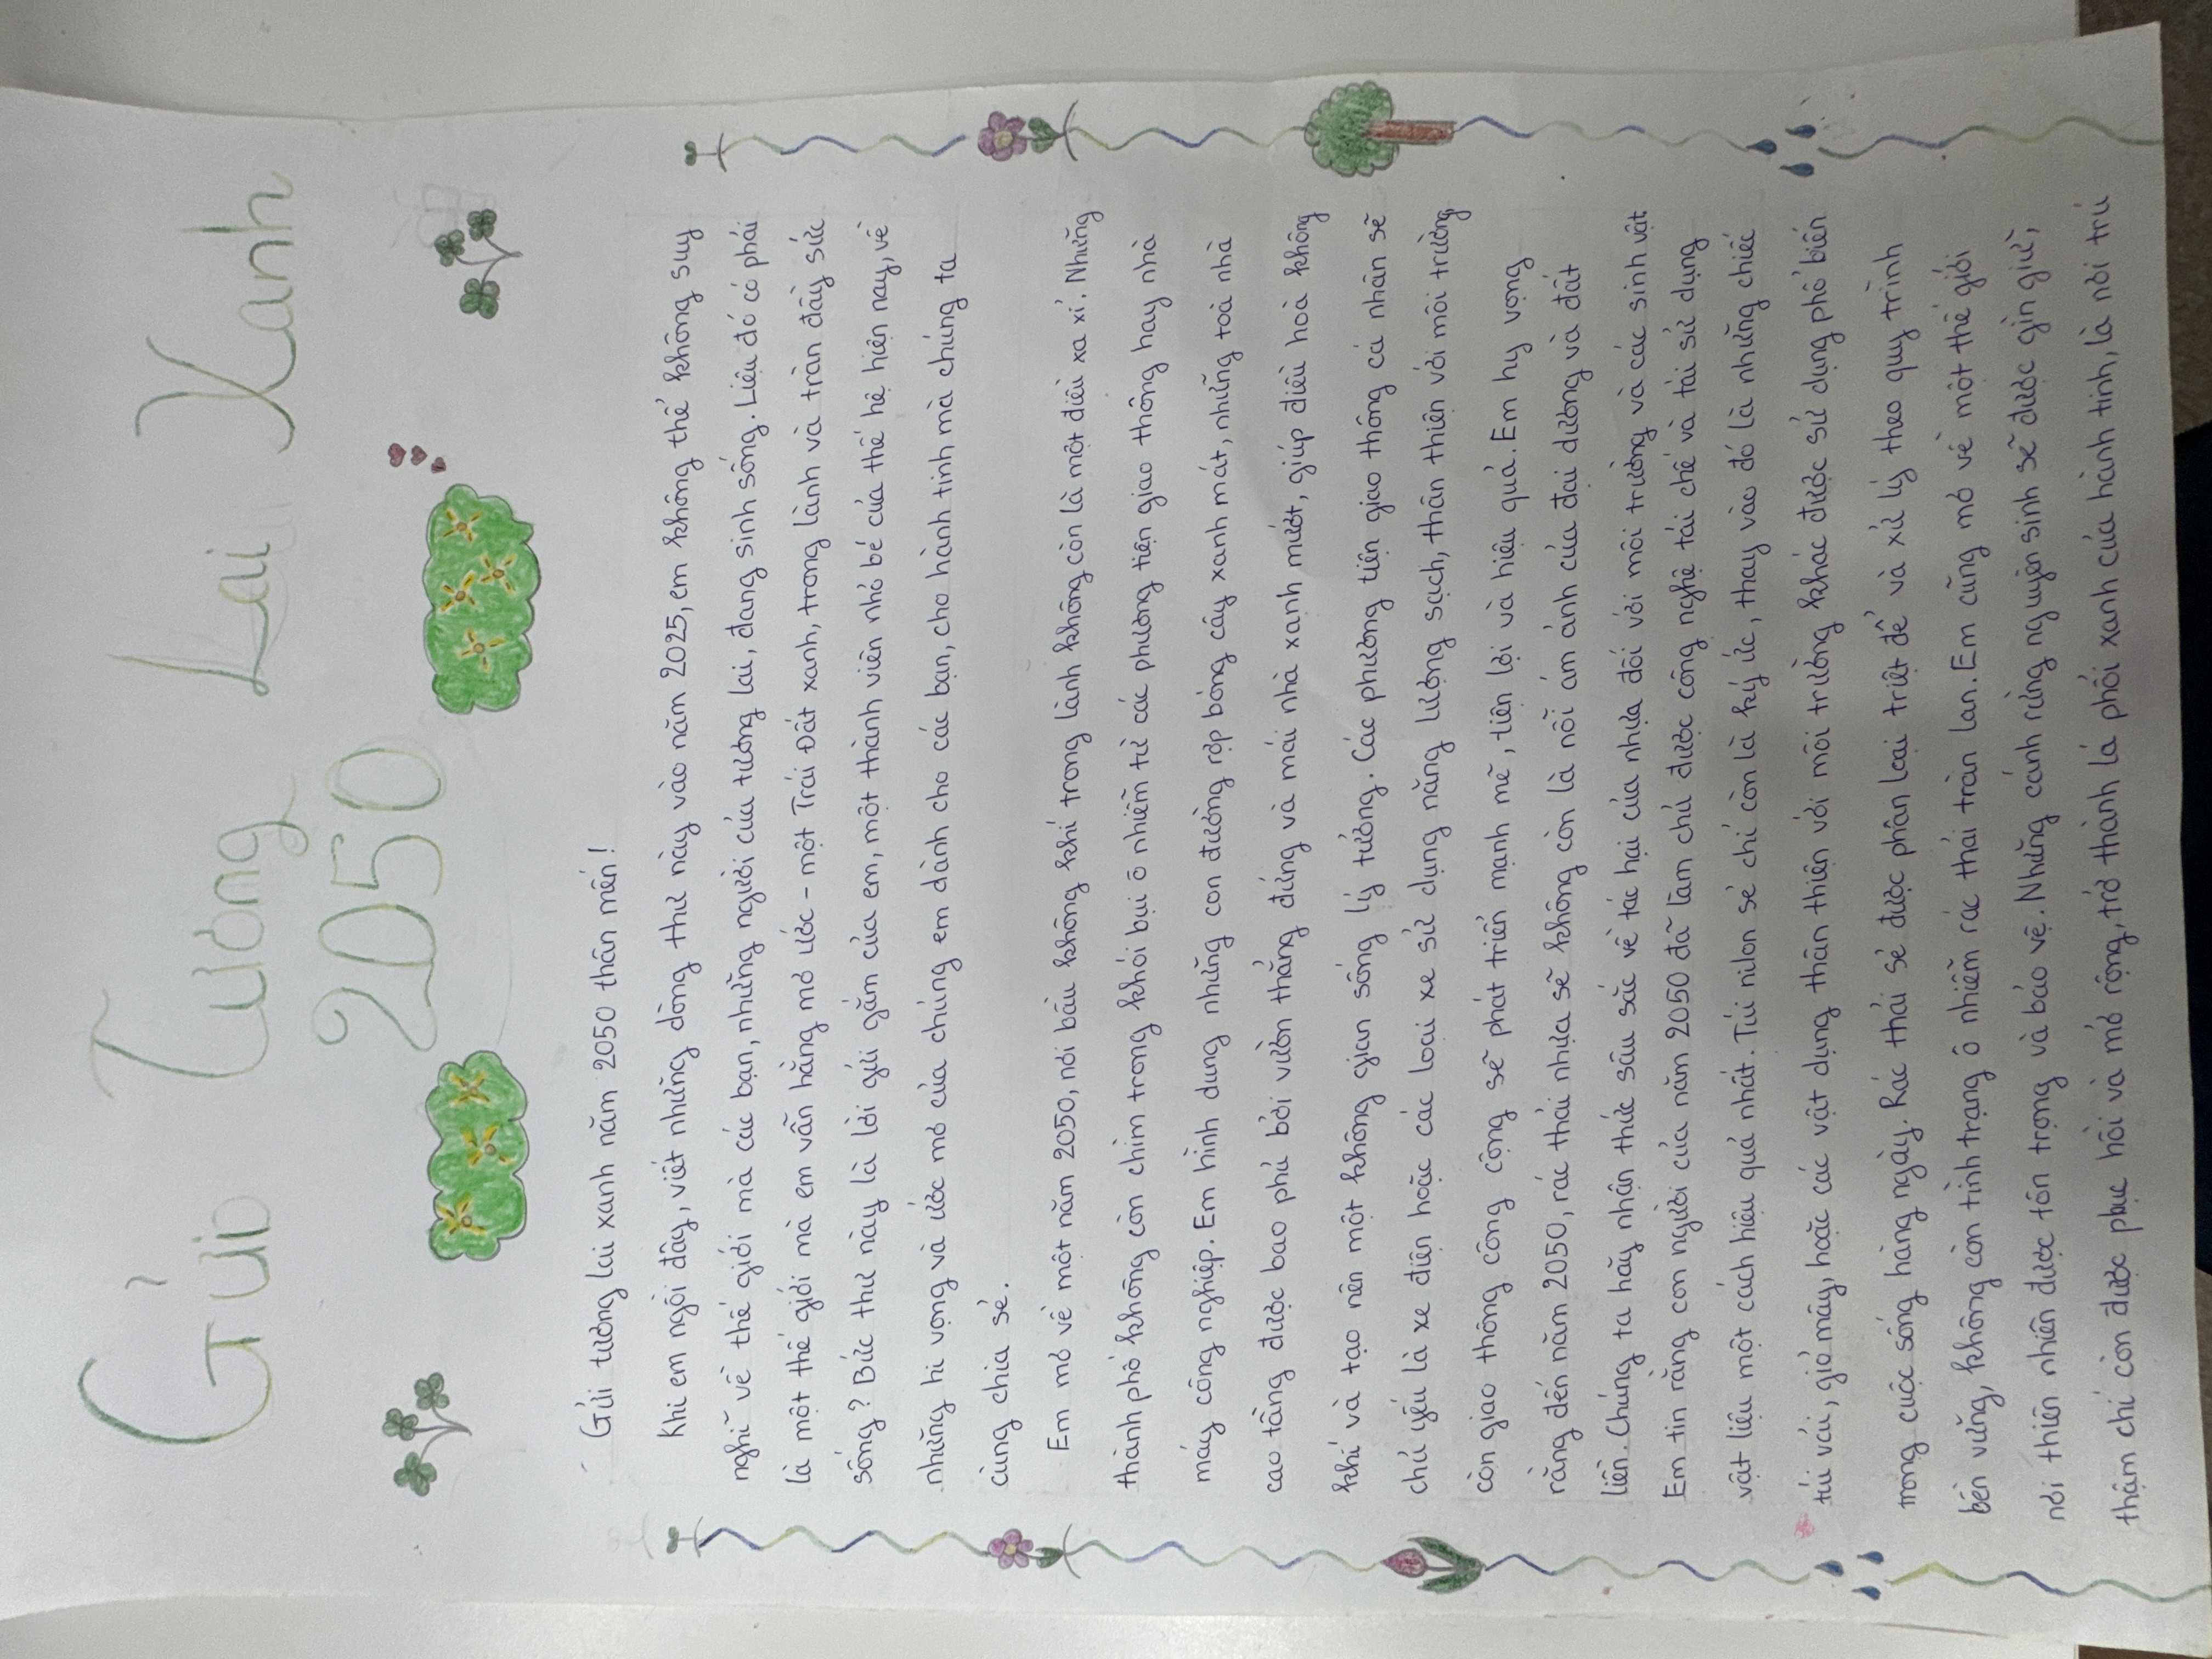 Gửi Tương Lai Xanh
2050
Gửi tương lai xanh năm 2050 thân mến!
Khi em ngồi đây, viết những dòng thư này vào năm 2025, em không thể không suy
nghĩ về thế giới mà các bạn, những người của tương lai, đang sinh sống. Liệu đó có phải
là một thế giới mà em vẫn hằng mơ ước - một Trái Đất xanh, trong lành và tràn đầy sức
sống? Bức thư này là lời gửi gắm của em, một thành viên nhỏ bé của thế hệ hiện nay, về
những hi vọng và ước mơ của chúng em dành cho các bạn, cho hành tinh mà chúng ta
cùng chia sẻ.
Em mơ về một năm 2050, nơi bầu không khí trong lành không còn là một điều xa xỉ. Những
thành phố không còn chìm trong khói bụi ô nhiễm từ các phương tiện giao thông hay nhà
máy công nghiệp. Em hình dung những con đường rợp bóng cây xanh mát, những toà nhà
cao tầng được bao phủ bởi vườn thẳng đứng và mái nhà xanh mướt, giúp điều hoà không
khí và tạo nên một không gian sống lý tưởng. Các phương tiện giao thông cá nhân sẽ
chủ yếu là xe điện hoặc các loại xe sử dụng năng lượng sạch, thân thiện với môi trường
còn giao thông công cộng sẽ phát triển mạnh mẽ, tiện lợi và hiệu quả. Em hy vọng
rằng đến năm 2050, rác thải nhựa sẽ không còn là nỗi ám ảnh của đại dương và đất
liền. Chúng ta hãy nhận thức sâu sắc về tác hại của nhựa đối với môi trường và các sinh vật
Em tin rằng con người của năm 2050 đã làm chủ được công nghệ tái chế và tái sử dụng
vật liệu một cách hiệu quả nhất. Túi nilon sẽ chỉ còn là ký ức, thay vào đó là những chiếc
túi vải, giỏ mây, hoặc các vật dụng thân thiện với môi trường khác được sử dụng phổ biến
trong cuộc sống hàng ngày. Rác thải sẽ được phân loại triệt để và xử lý theo quy trình
bền vững, không còn tình trạng ô nhiễm rác thải tràn lan. Em cũng mơ về một thế giới
nơi thiên nhiên được tôn trọng và bảo vệ. Những cánh rừng nguyên sinh sẽ được gìn giữ,
thậm chí còn được phục hồi và mở rộng, trở thành lá phổi xanh của hành tinh, là nơi trú